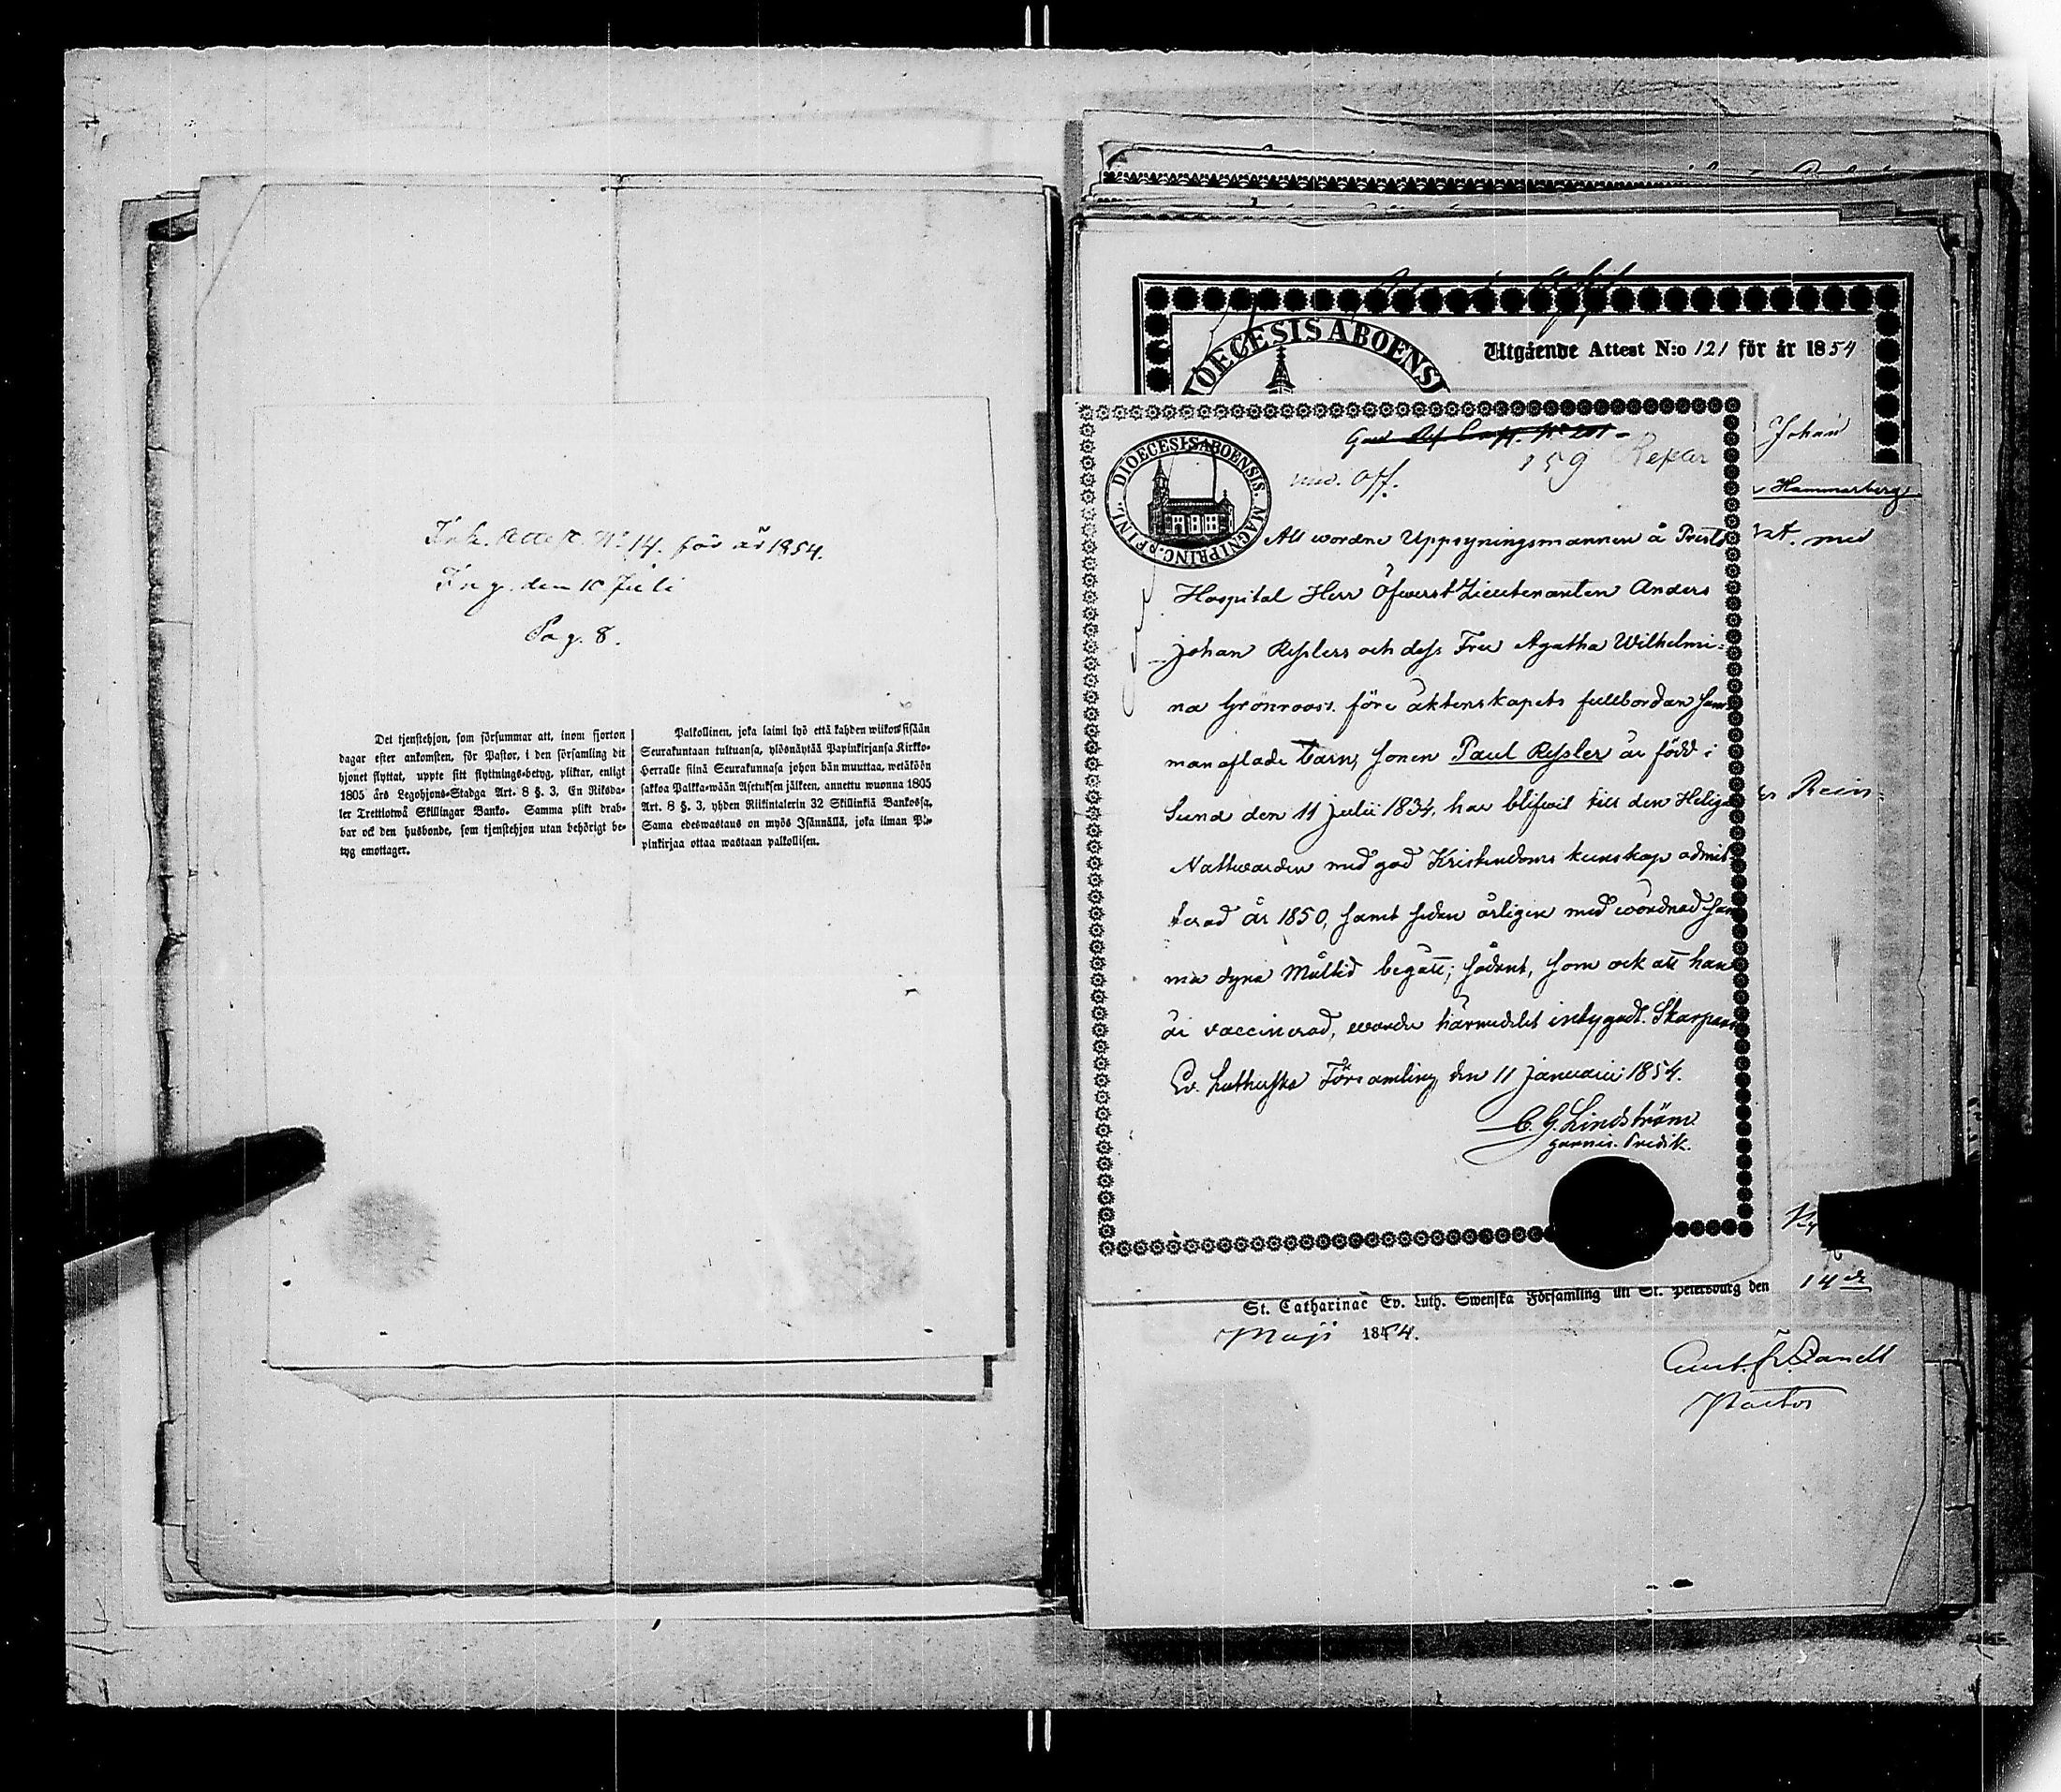 Ink. Attest. No 14. för år 1854.
Ing. den 10 Juli
Pag. 8.
Det tjenstehjon, som försummar att, inom fjorton
dagar efter ankomsten, för Pastor, i den församling dit
hjonet flyttat, uppte sitt flyttnings-betyg, pliktar, enligt
1805 års Legohjons-Stadga Art. 8 §. 3, En Riksda-
ler Trettiotwå Skillingar Banko. Samma plikt drab-
bar ock den husbonde, som tjenstehjon utan behörigt be-
tyg emottager.
Palkollinen, joka laimi lyö että kahden wiikon sisään
Seurakuntaan tultuansa, ylösnäytää Papinkirjansa Kirkko-
Herralle siinä Seurakunnasa johon hän muuttaa, wetäköön
sakkoa Palkka-wään Asetuksen jälkeen, annettu wuonna 1805
Art. 8 §. 3, yhden Riikintalerin 32 Skillinkiä Bankossa.
Sama edeswastaus on myös Isännällä, joka ilman Pa-
pinkirjaa ottaa wastaan palkollisen.
DIOECESIS ABOENSI
Utgående Attest N:o 121 för år 1854
Johan
Hammarberg
med
Rein
DIOECESIS ABOENSIS. MAGNI PRINC. FINL.
159 Repar
und. Off.
Att wordne Uppsyningsmannen å Prestö
Hospital Herr Öfwerst Lieutenanten Anders
Johan Resslers och dess Fru Agatha Wilhelmi-
na Grönroos's före äktenskapets fullbordan sam-
manaflade barn, sonen Paul Ressler är född i
Sund den 11 Julii 1834, har blifwit till den Heliga
Nattwarden med god Kristendoms kunskap admit-
terad år 1850, samt sedan årligen med wördnad sam-
ma dyra Måltid begått; sådant, som ock att han
är vaccinerad, warder härmedelst intygadt. Skarpans
Ev. Lutherska Församling, den 11 Januarii 1854.
C. G. Lindström
garnis. Predik.
St. Catharinae Ev. Luth. Swenska Församling uti St. Petersburg den 14de
Maji 1854.
Sandt
Pastor